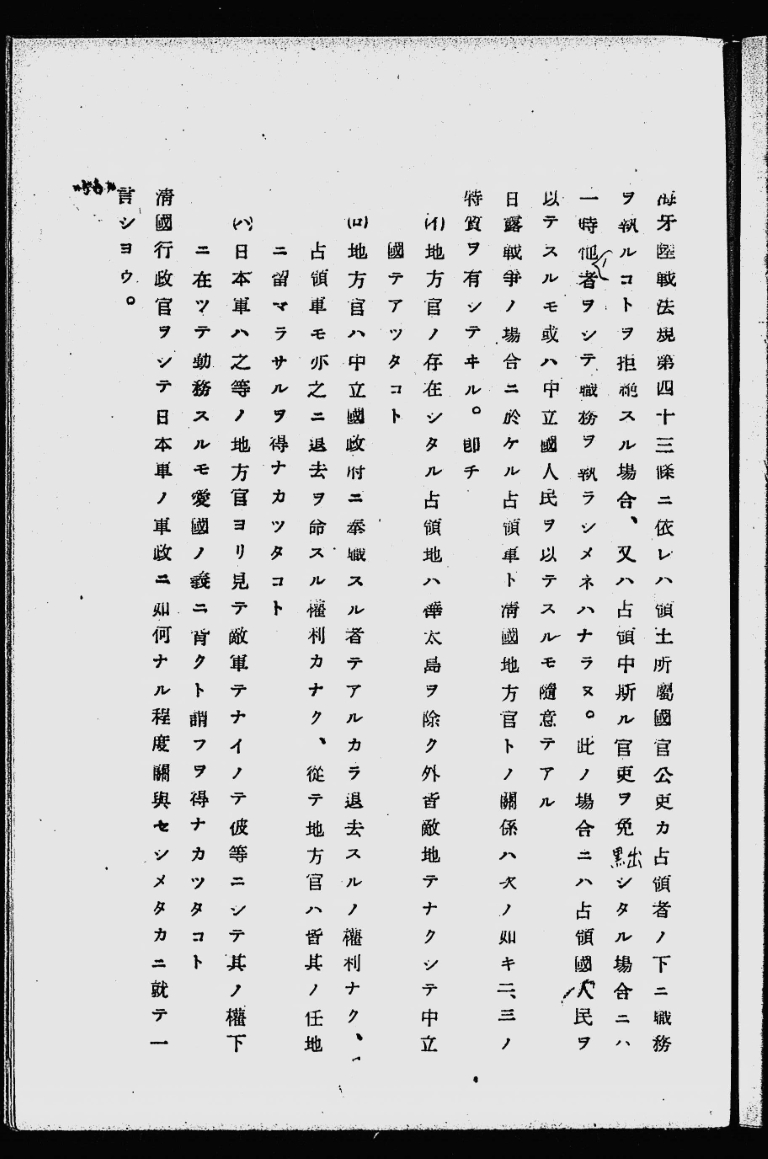 海牙陸戰法規第四十三條ニ依レハ領土所屬國官公吏カ占領者ノ下ニ職務
ヲ執ルコトヲ拒絶スル場合、又ハ占領中斯ル官吏ヲ免黜シタル場合ニハ
一時他者ヲシテ職務ヲ執ラシメネハナラヌ。此ノ場合ニハ占領國人民ヲ
以テスルモ或ハ中立國人民ヲ以テスルモ隨意テアル
日露戰爭ノ場合ニ於ケル占領軍ト淸國地方官トノ關係ハ次ノ如キ二、三ノ
特質ヲ有シテヰル。卽チ
(イ)地方官ノ存在シタル占領地ハ樺太島ヲ除ク外皆敵地テナクシテ中立
國テアツタコト
(ロ)地方官ハ中立國政府ニ奉職スル者テアルカラ退去スルノ權利ナク、
占領軍モ亦之ニ退去ヲ命スル權利カナク、從テ地方官ハ皆其ノ任地
ニ留マラサルヲ得ナカツタコト
(ハ)日本軍ハ之等ノ地方官ヨリ見テ敵軍テナイノテ彼等ニシテ其ノ權下
ニ在ツテ勤務スルモ愛國ノ義ニ背クト謂フヲ得ナカツタコト
淸國行政官ヲシテ日本軍ノ軍政ニ如何ナル程度關與セシメタカニ就テ一
言シヨウ。